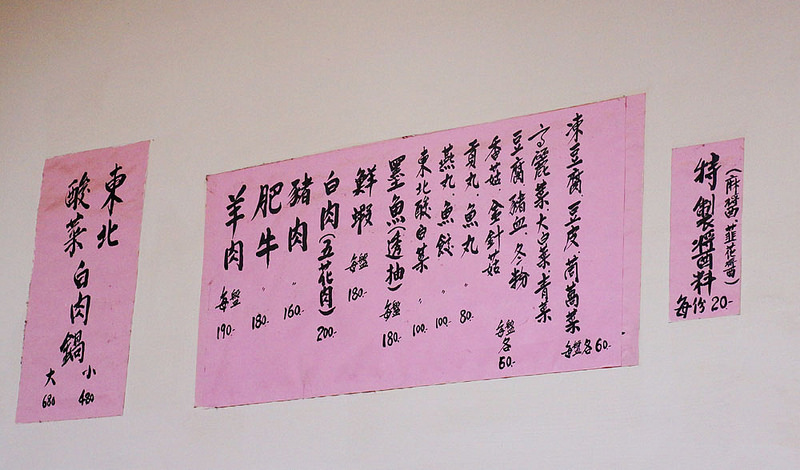 (麻醬、韮花醬)
特製醬料
每份20-
凍豆腐 豆皮 茼萵菜 每盤各60.-
高麗菜 大白菜 青菜
豆腐 豬血 冬粉
香菇 金針菇 每盤各50.-
貢丸、魚丸 〃 80.-
燕丸、魚餃 〃 100.-
東北酸白菜 〃 100.-
墨魚(透抽) 每盤 180.-
鮮蝦 每盤 180.-
白肉(五花肉) 200.-
豬肉 〃 160.-
肥牛 〃 180.-
羊肉 每盤 190.-
東北
酸菜白肉鍋
小 480
大 680